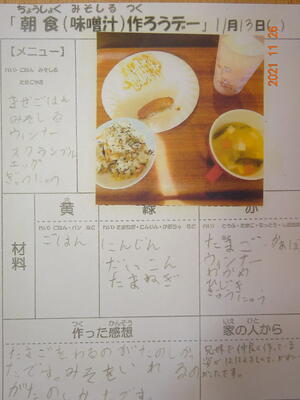 ちょうしょく みそしる つく
「朝食(味噌汁)作ろうデー」11月13日( )
2021 11 26
【メニュー】
れい ごはん みそしる
たまごやき
まぜごはん
みそしる
ウィンナー
スクランブル
エッグ
ぎゅうにゅう
材料
黄 緑 赤
ごはん
にんじん
だいこん
たまねぎ
たまご
ウィンナー
わかめ
ひじき
ぎゅうにゅう
つく かんそう
作った感想
いえ ひと
家の人から
たまごをわるのがたのしかっ
たです。みそをいれるの
がたのしかったです。
兄弟で仲良く作っている